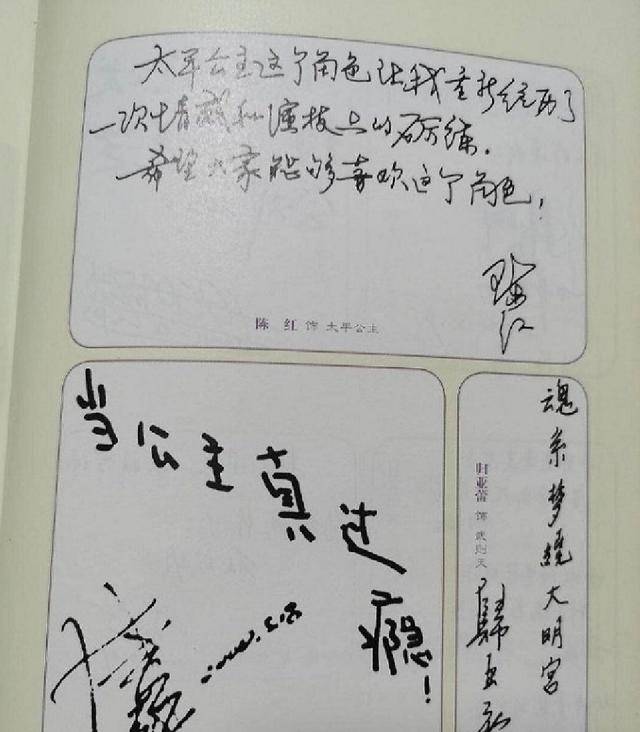 太平公主这个角色让我重新经历了
一次情感和演技上的磨练.
希望大家能够喜欢这个角色!
陈红
陈 红 饰 太平公主
当公主真过
瘾!
魂系梦绕大明宫
归亚蕾 饰 武则天
歸亞蕾